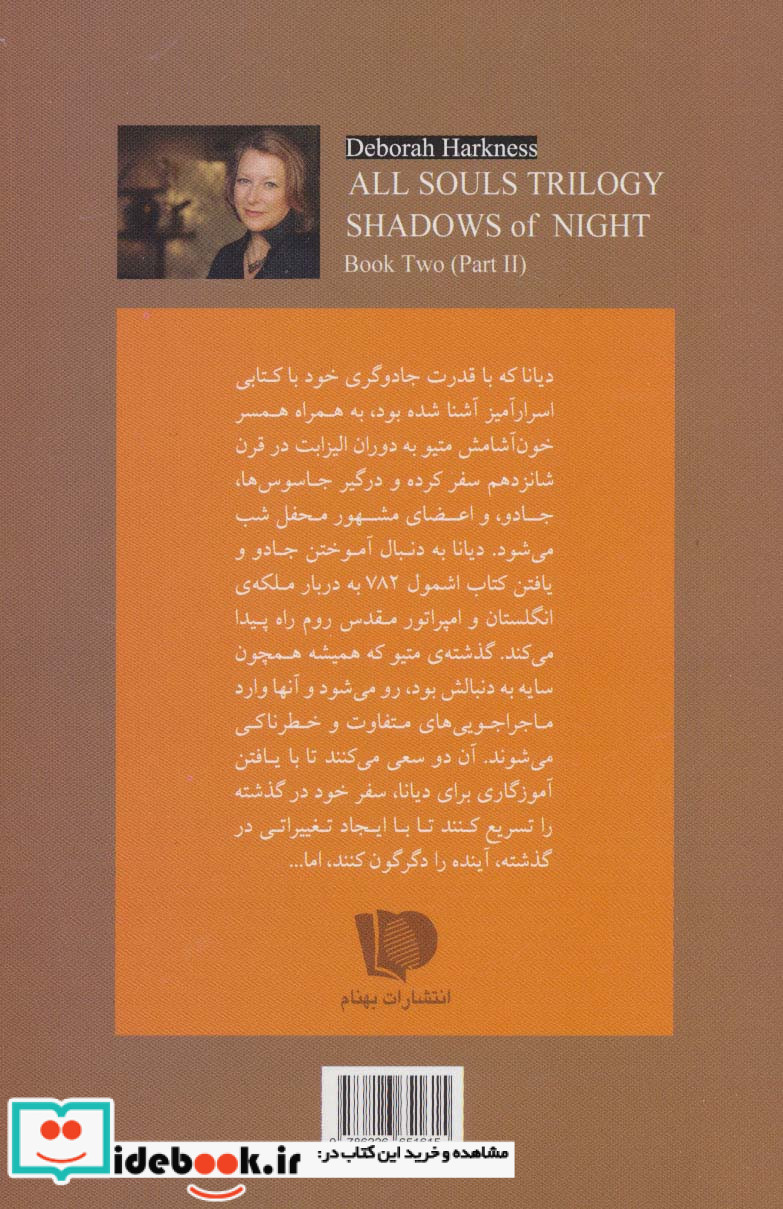 Deborah Harkness
ALL SOULS TRILOGY
SHADOWS of NIGHT
Book Two (Part II)
دیانا که با قدرت جادوگری خود با کتابی
اسرارآمیز آشنا شده بود، به همراه همسر
خون‌آشامش متیو به دوران الیزابت در قرن
شانزدهم سفر کرده و درگیر جاسوس‌ها،
جادو، و اعضای مشهور محفل شب
می‌شود. دیانا به دنبال آموختن جادو و
یافتن کتاب اشمول ۷۸۲ به دربار ملکه‌ی
انگلستان و امپراتور مقدس روم راه پیدا
می‌کند. گذشته‌ی متیو که همیشه همچون
سایه به دنبالش بود، رو می‌شود و آنها وارد
ماجراجویی‌های متفاوت و خطرناکی
می‌شوند. آن دو سعی می‌کنند تا با یافتن
آموزگاری برای دیانا، سفر خود در گذشته
را تسریع کنند تا با ایجاد تغییراتی در
گذشته، آینده را دگرگون کنند، اما...
انتشارات بهنام
مشاهده و خرید این کتاب در:
idebook.ir